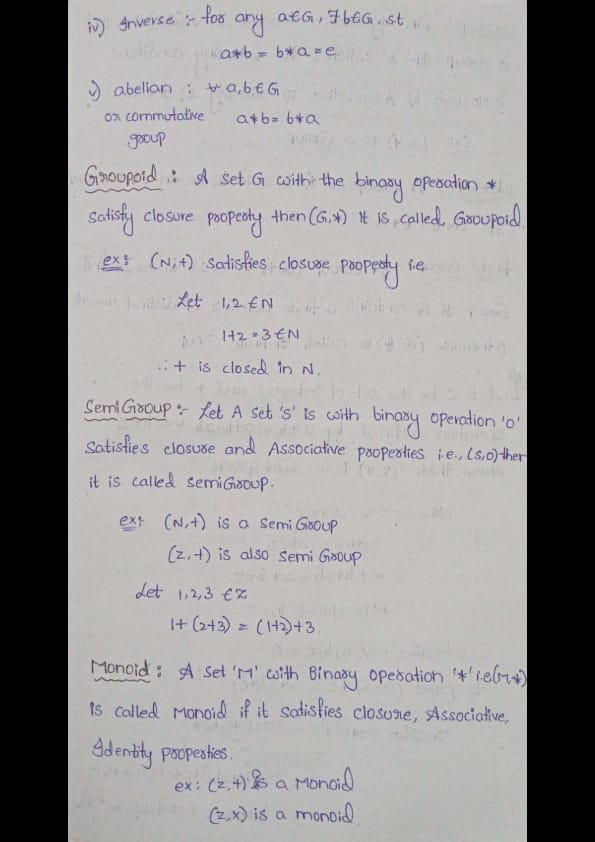 iv) Inverse :- for any a∈G, ∃ b∈G, st
a*b = b*a = e.
v) abelian : ∀ a,b ∈ G
or commutative a*b = b*a
group
Groupoid : A set G with the binary operation *
satisfy closure property then (G,*) It is called Groupoid.
ex: (N,+) satisfies closure property i.e.
Let 1,2 ∈ N
1+2 = 3 ∈ N
∴ + is closed in N.
Semi Group :- Let A set 's' is with binary operation 'o'
satisfies closure and Associative properties i.e., (s,o) then
it is called semi Group.
ex: (N,+) is a semi Group
(Z,+) is also semi Group
Let 1,2,3 ∈ Z
1+(2+3) = (1+2)+3.
Monoid : A set 'M' with Binary operation '*' i.e (M,*)
is called Monoid if it satisfies closure, Associative,
Identity properties.
ex: (Z,+) is a Monoid
(Z,x) is a monoid.